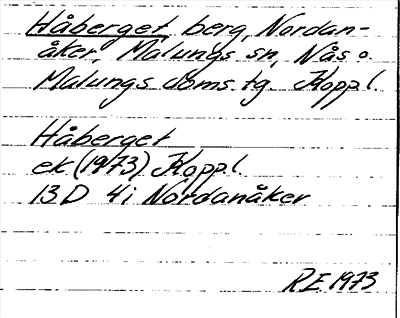 Håberget, berg, Nordan-
åker, Malungs sn, Nås o.
Malungs doms. tg. Kopp.l.
Håberget
ek. (1973) Kopp.l.
13D 4i Nordanåker
R.E. 1973